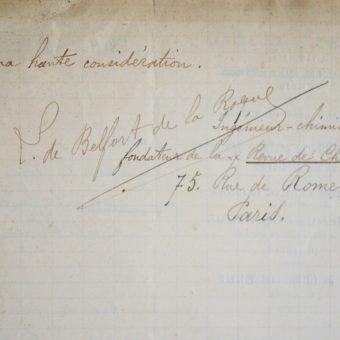 ma haute considération.
L. de Belfort de la Roque
Ingénieur-chimi
fondateur de la Revue de Ch
75. Rue de Rome
Paris.